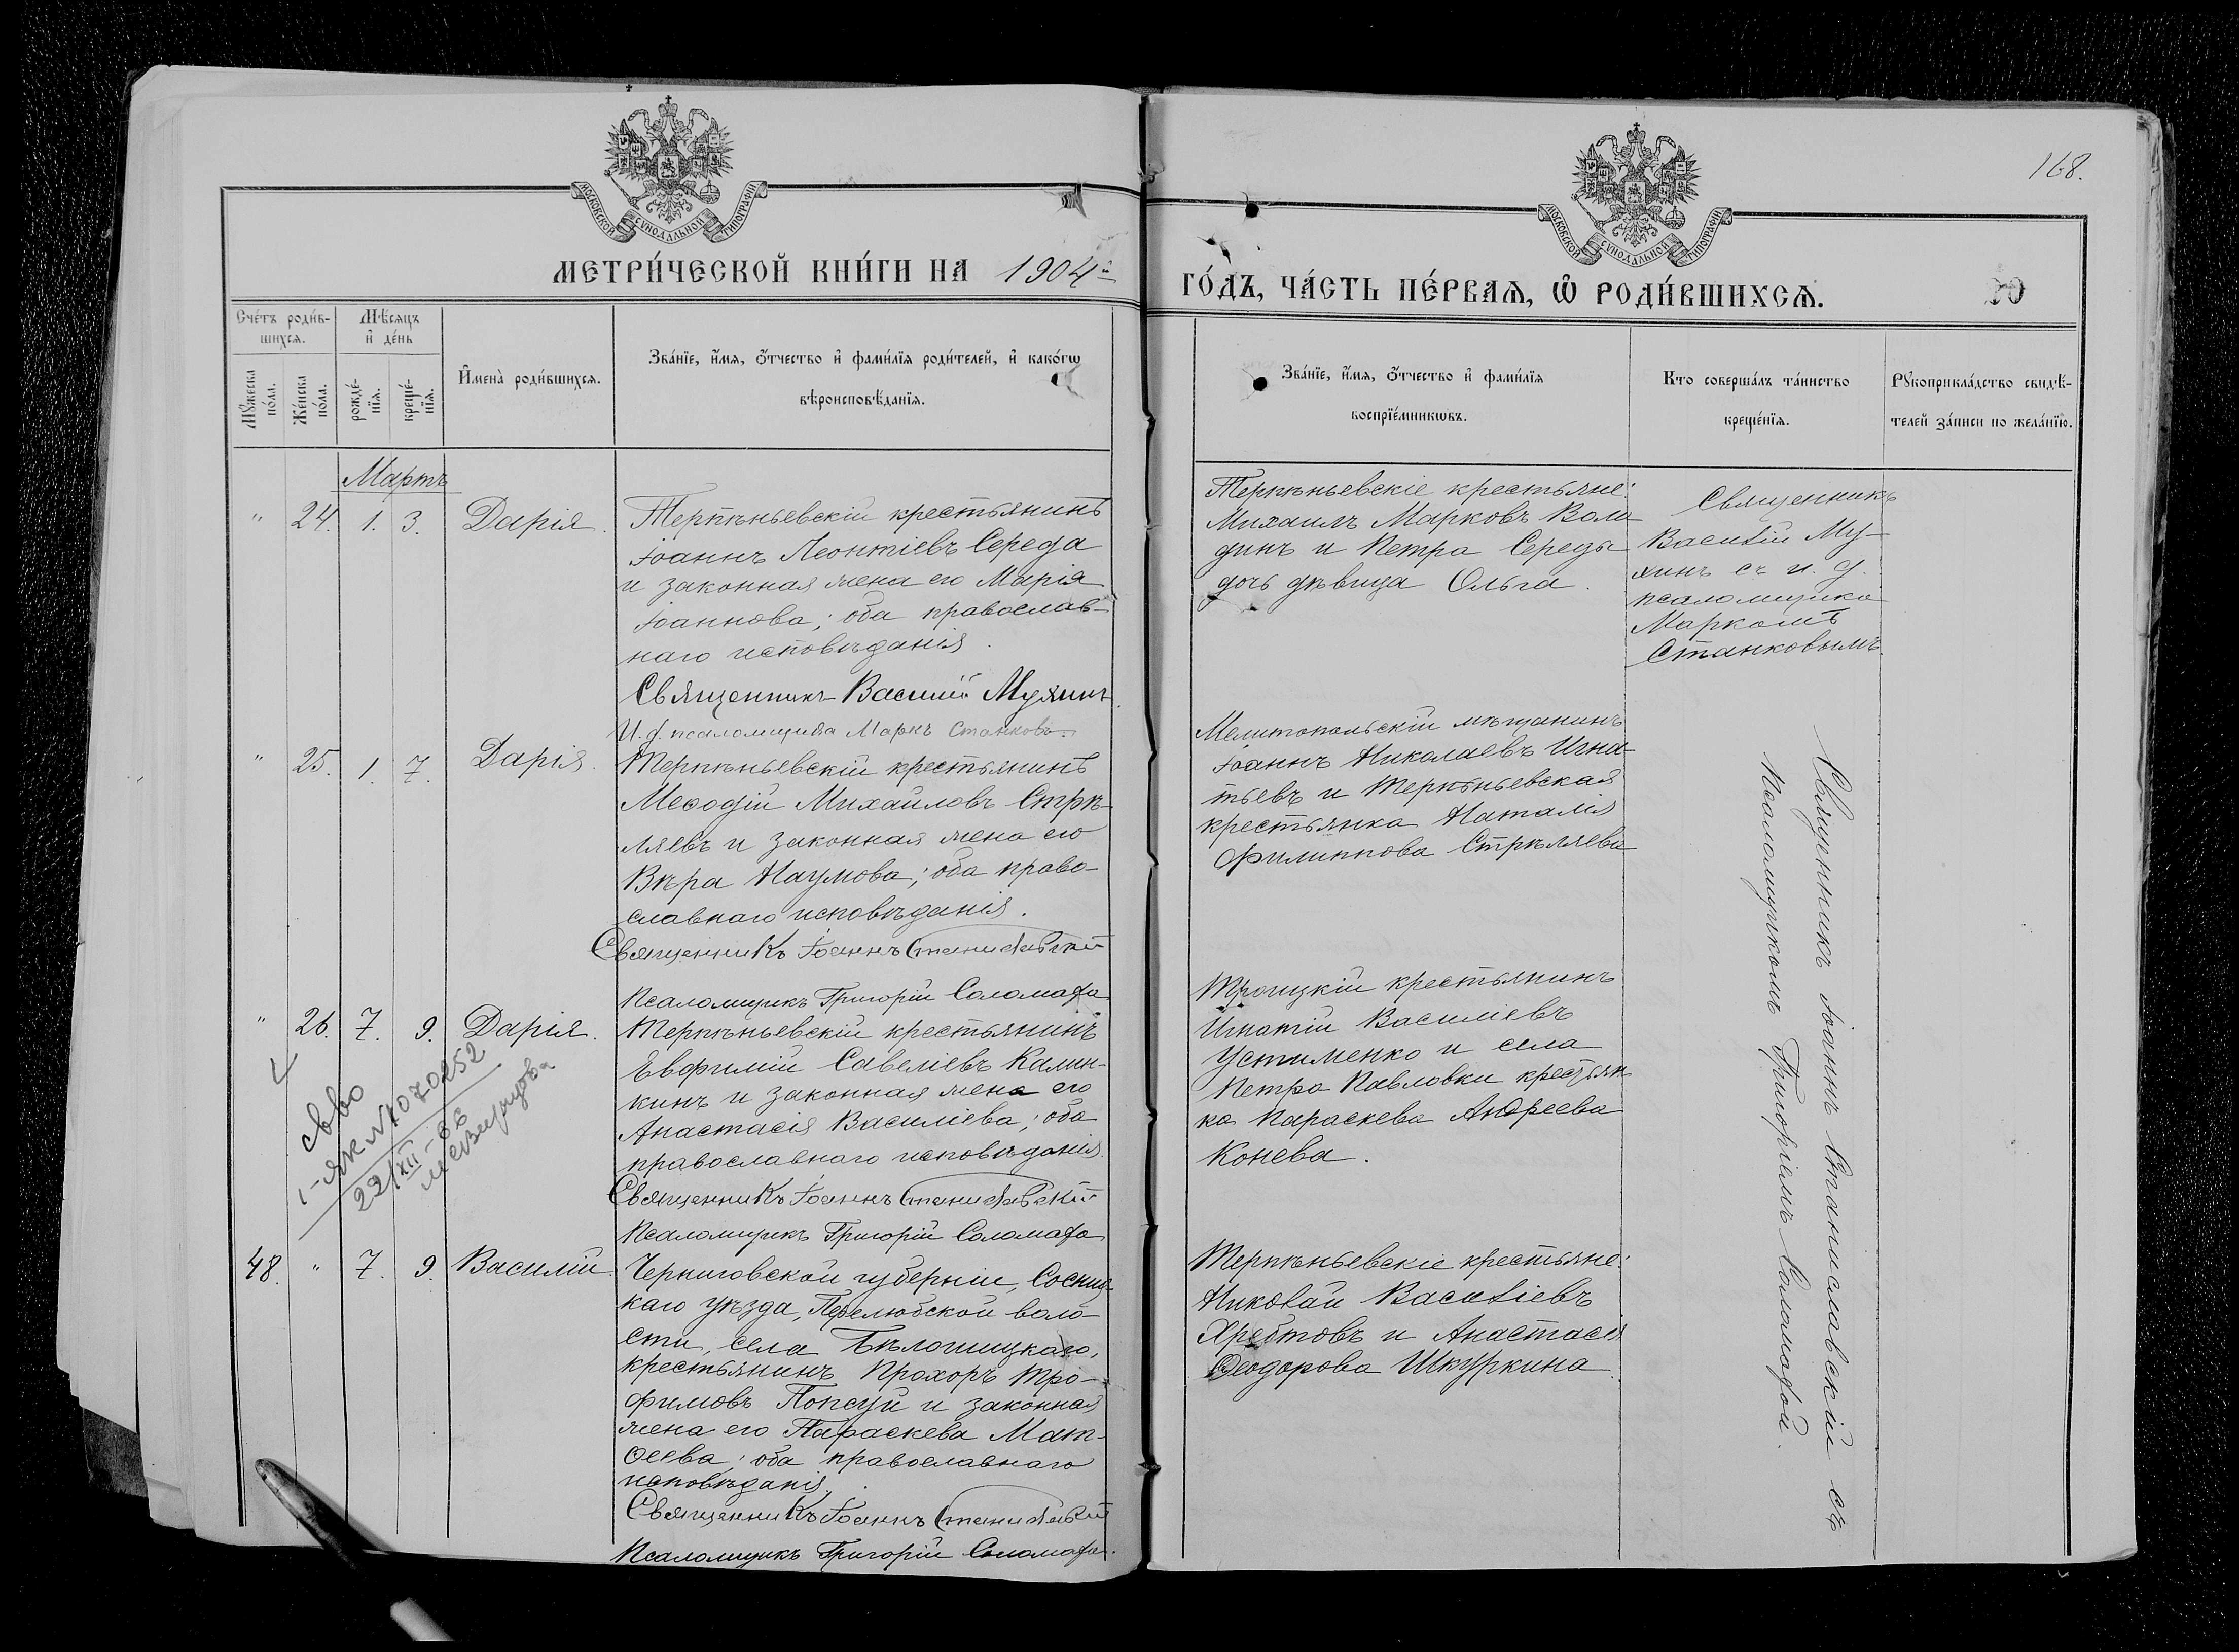 168.
МОСКОВСКОЙ СѴНОДАЛЬНОЙ ТИПОГРАФІИ
МОСКОВСКОЙ СѴНОДАЛЬНОЙ ТИПОГРАФІИ
МЕТРИ́ЧЕСКОЙ КНИ́ГИ НА 1904й
ГО́ДЪ, ЧА́СТЬ ПЕ́РВАѦ, Ѡ РОДИ́ВШИХСѦ.
20
Сче́тъ роди́в-
шихсѧ.
Мꙋ́жеска
по́ла.
Же́нска
по́ла.
Мѣ́сѧцъ
и҆ де́нь
рожде́-
нїѧ.
креще́-
нїѧ.
И҆мена̀ роди́вшихсѧ.
Зва́нїе, и҆́мѧ, ѻ҆́тчество и҆ фами́лїѧ роди́телей, и҆ како́гѡ
вѣроисповѣ́данїѧ.
Зва́нїе, и҆́мѧ, ѻ҆́тчество и҆ фами́лїѧ
воспрїе́мникѡвъ.
Кто соверша́лъ та́инство
креще́нїѧ.
Рꙋкоприкла́дство свидѣ́-
телей за́писи по жела́нїю.
Мартъ
" 24. 1. 3. Дарія.
Терпѣньевскій крестьянинъ
Іоаннъ Леонтіевъ Середа
и законная жена его Марія
Іоаннова; оба православ-
наго исповѣданія.
Священникъ Василій Мухинъ.
И. д. псаломщика Маркъ Станковъ.
Терпѣньевскіе крестьяне:
Михаилъ Марковъ Воло-
динъ и Петра Середы
дочь дѣвица Ольга.
Священникъ
Василій Му-
хинъ съ и. д.
псаломщика
Маркомъ
Станковымъ.
" 25. 1. 7. Дарія.
Терпѣньевскій крестьянинъ
Меѳодій Михайловъ Стрѣ-
ляевъ и законная жена его
Вѣра Наумова; оба право-
славнаго исповѣданія.
Священникъ Іоаннъ Станиславскій
Псаломщикъ Григорій Соломаха
Мелитопольскій мѣщанинъ
Іоаннъ Николаевъ Игна-
тьевъ и Терпѣньевская
крестьянка Наталія
Филиппова Стрѣляева
" 26. 7. 9. Дарія.
Терпѣньевскій крестьянинъ
Евфимій Савеліевъ Калин-
кинъ и законная жена его
Анастасія Василіева; оба
православнаго исповѣданія.
Священникъ Іоаннъ Станиславскій
Псаломщикъ Григорій Соломаха
Троицкій крестьянинъ
Игнатій Василіевъ
Устименко и села
Петро Павловки крестьян-
ка Параскева Андреева
Конева.
св-во
I-ЯК №1070252
22/XII-66
48. " 7. 9. Василій.
Черниговской губерніи, Сосниц-
каго уѣзда, Перелюбской воло-
сти, села Бѣлошицкаго,
крестьянинъ Прохоръ Тро-
фимовъ Попсуй и законная
жена его Параскева Мат-
ѳеева; оба православнаго
исповѣданія.
Священникъ Іоаннъ Станиславскій
Псаломщикъ Григорій Соломаха.
Терпѣньевскіе крестьяне:
Николай Василіевъ
Хребтовъ и Анастасія
Ѳеодорова Шкуркина.
Священникъ Іоаннъ Станиславскій съ
псаломщикомъ Григоріемъ Соломахой.